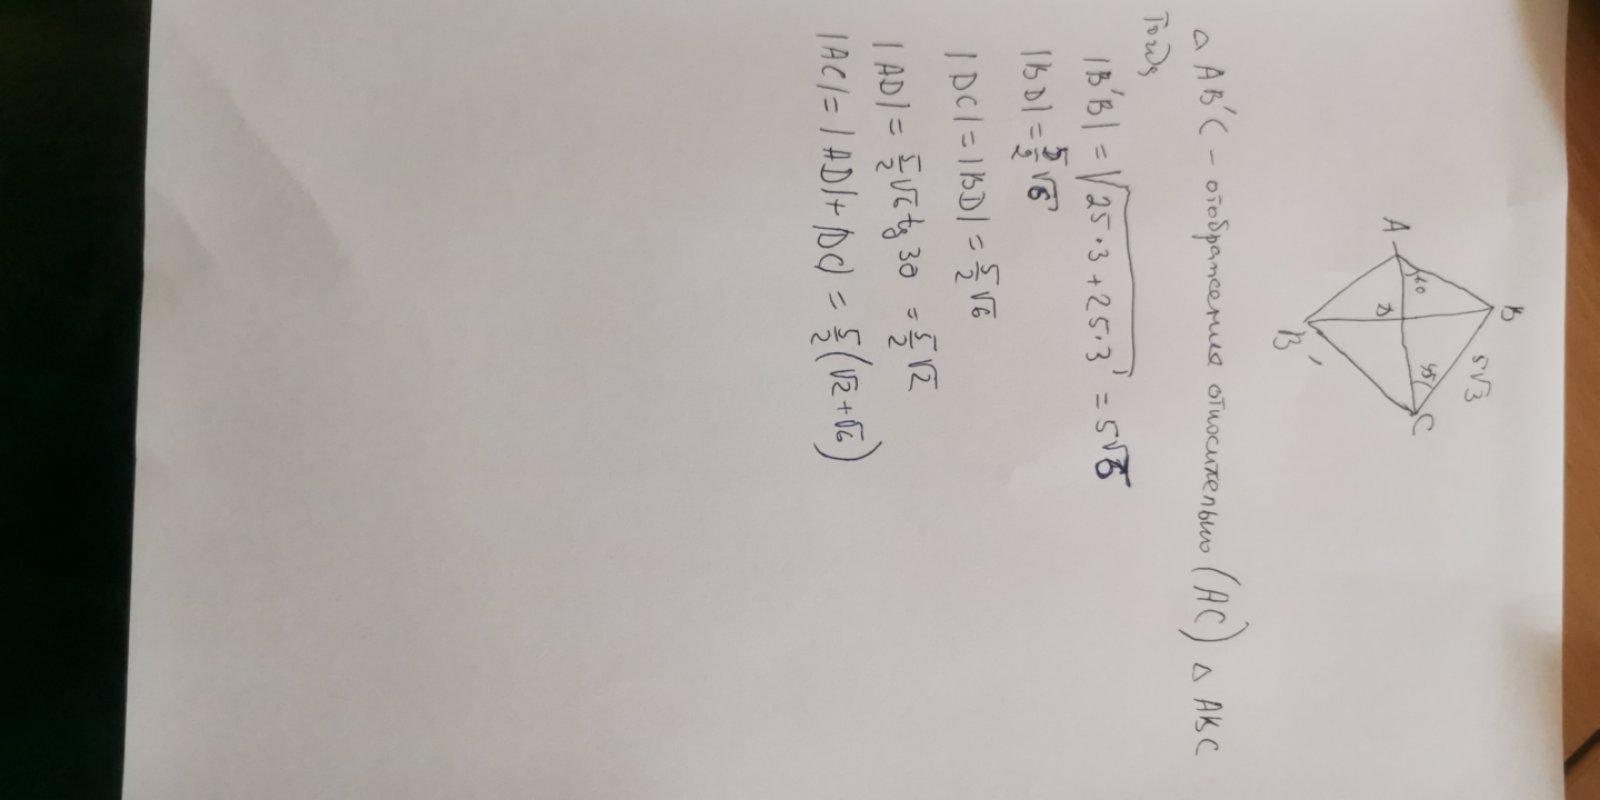 B
5√3
A
60
D
45
C
B'
△ AB'C - отображение относительно (AC) △ ABC
Тогда
|B'B| = √25·3 + 25·3 = 5√6
|BD| = 5/2 √6
|DC| = |BD| = 5/2 √6
|AD| = 5/2 √6 tg 30 = 5/2 √2
|AC| = |AD| + |DC| = 5/2 (√2 + √6)